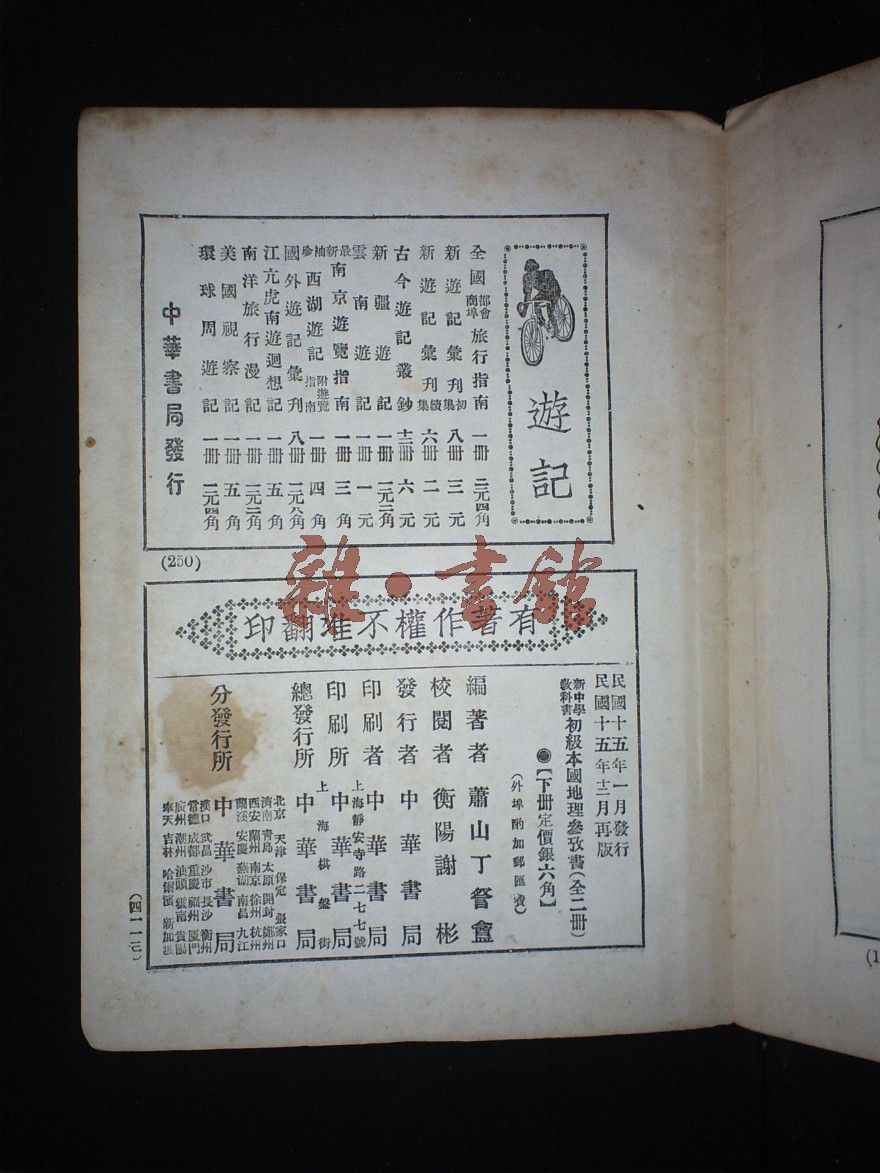 遊記
全國都會商埠旅行指南 一冊 二元四角
新遊記彙刊初集 八冊 三元
新遊記彙刊續集 六冊 二元
古今遊記叢鈔 十二冊 六元
新疆遊記 一冊 一元二角
雲南遊記 一冊 一元
最新南京遊覽指南 一冊 三角
袖珍西湖遊記附遊覽指南 一冊 四角
國外遊記彙刊 八冊 一元八角
江亢虎南遊迴想記 一冊 五角
南洋旅行漫記 一冊 一元二角
美國視察記 一冊 五角
環球周遊記 一冊 一元四角
中華書局發行
(250)
雜·書館
有著作權不准翻印
民國十五年一月發行
民國十五年十二月再版
新中學教科書初級本國地理參攷書(全二冊)
【下冊定價銀六角】
(外埠酌加郵匯費)
編著者 蕭山丁詧盦
校閱者 衡陽謝彬
發行者 中華書局
印刷者 中華書局
上海靜安寺路二七七號
印刷所 中華書局
上海棋盤街
總發行所 中華書局
分發行所 中華書局
北京 天津 保定 張家口
濟南 青島 太原 開封 鄭州
西安 蘭州 南京 徐州 杭州
蘭溪 安慶 蕪湖 南昌 九江
漢口 武昌 沙市 長沙 衡州
常德 成都 重慶 福州 廈門
廣州 潮州 汕頭 雲南 貴陽
奉天 吉林 哈爾濱 新加坡
(1